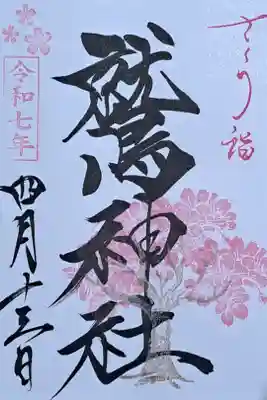 さくら詣
鷲神社
令和七年
四月十三日